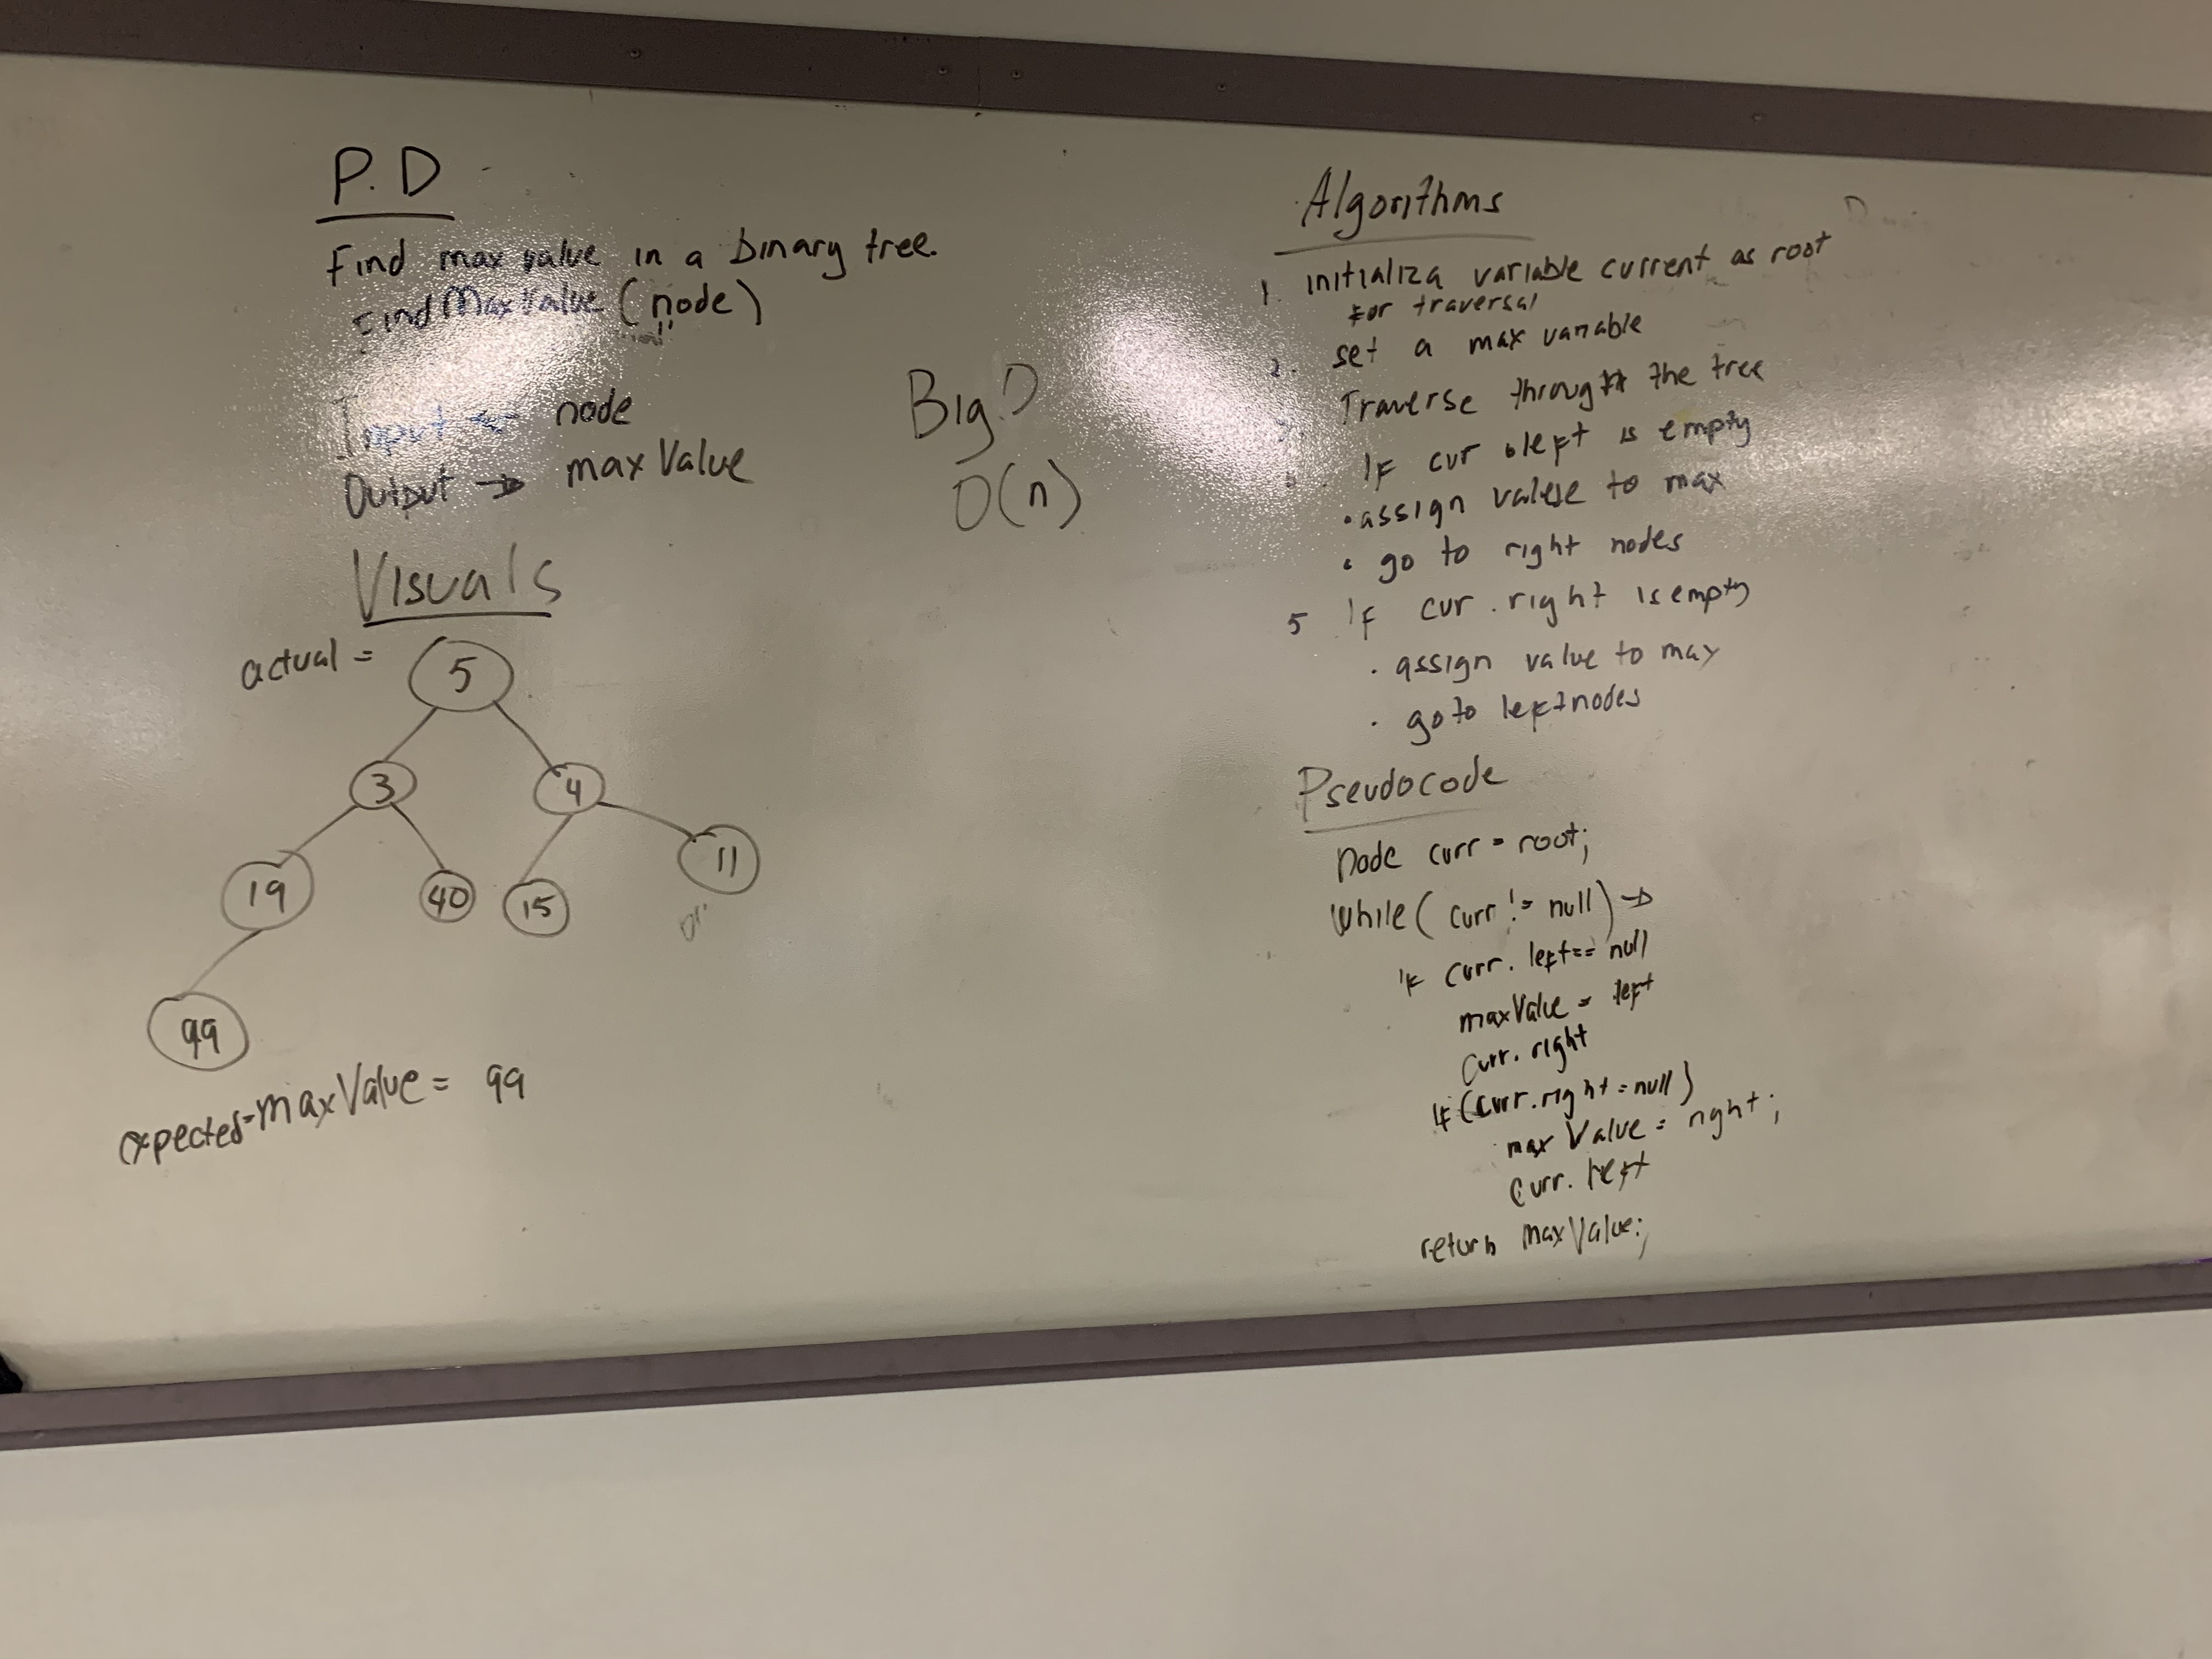 P.D
Find max value in a binary tree.
FindMaxValue (node)
Input ← node
Output → maxValue
Big O
O(n)
Visuals
actual =
5
3
4
19
40
15
11
99
expected-maxValue = 99
Algorithms
1. initializa variable current as root
for traversal
2. set a max variable
Traverse through the tree
If cur left is empty
• assign value to max
• go to right nodes
5 If cur . right is empty
. assign value to max
. go to left nodes
Pseudocode
Node curr = root;
While ( curr != null ) →
if curr. left == null
maxValue = left
Curr. right
If (curr.right = null)
max Value = right;
Curr. left
return maxValue;